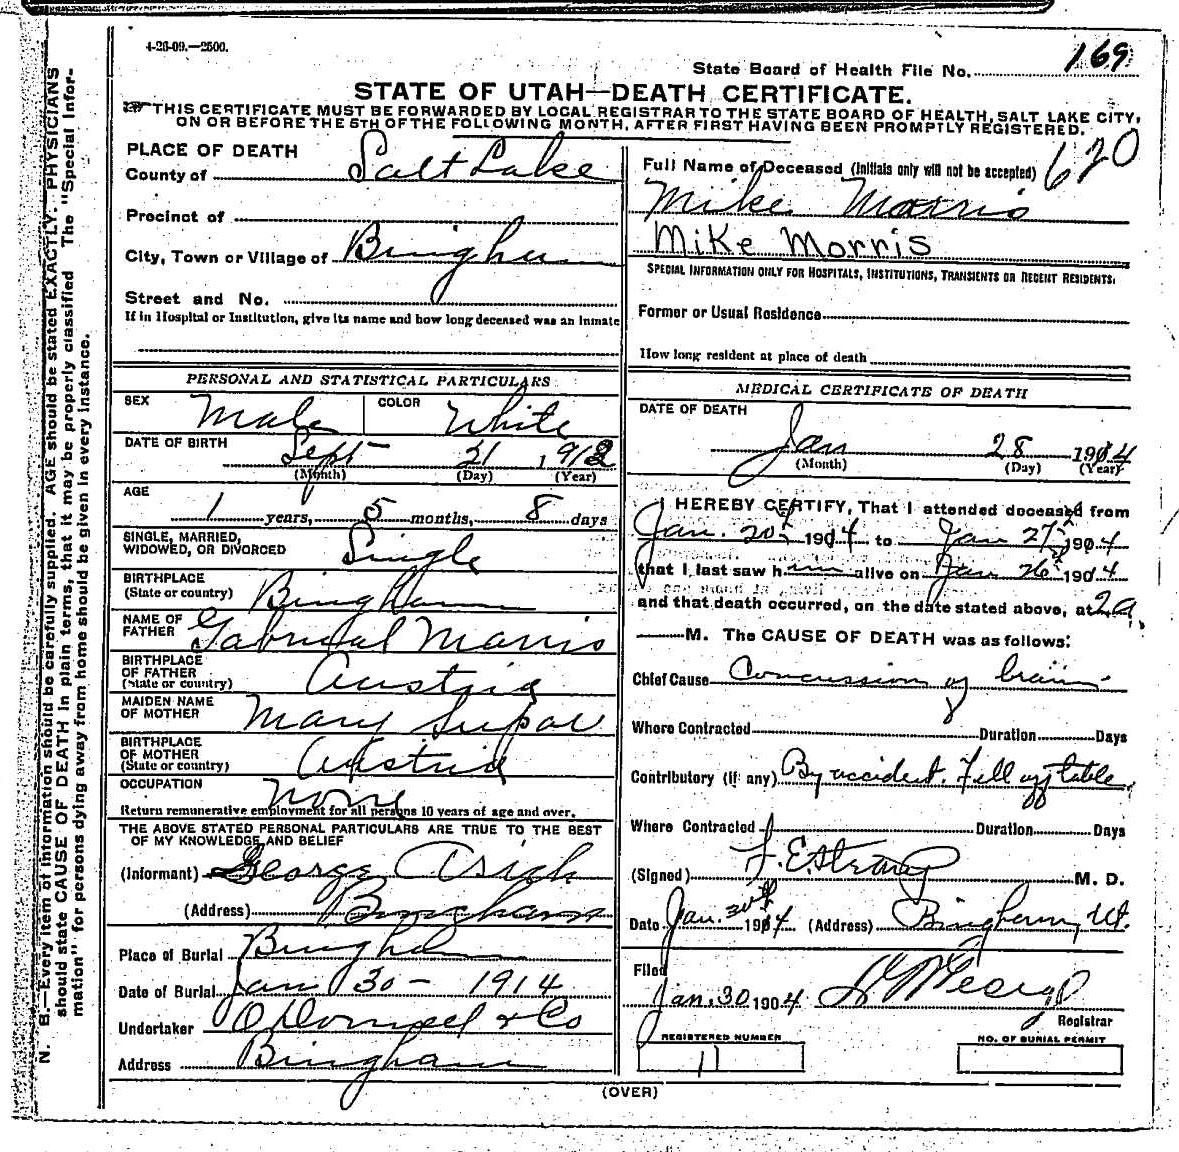 4-26-09.—2500.
State Board of Health File No. 169
STATE OF UTAH—DEATH CERTIFICATE.
THIS CERTIFICATE MUST BE FORWARDED BY LOCAL REGISTRAR TO THE STATE BOARD OF HEALTH, SALT LAKE CITY,
ON OR BEFORE THE 5TH OF THE FOLLOWING MONTH, AFTER FIRST HAVING BEEN PROMPTLY REGISTERED.
620
N. B.—Every item of information should be carefully supplied. AGE should be stated EXACTLY. PHYSICIANS
should state CAUSE OF DEATH in plain terms, that it may be properly classified. The "Special Infor-
mation" for persons dying away from home should be given in every instance.
PLACE OF DEATH
County of Salt Lake
Precinct of
City, Town or Village of Bingham
Street and No.
If in Hospital or Institution, give its name and how long deceased was an inmate
PERSONAL AND STATISTICAL PARTICULARS
SEX Male COLOR White
DATE OF BIRTH Sept 21 1912
(Month) (Day) (Year)
AGE
1 years, 5 months, 8 days
SINGLE, MARRIED,
WIDOWED, OR DIVORCED Single
BIRTHPLACE
(State or country) Bingham
NAME OF
FATHER Gabrieal Morris
BIRTHPLACE
OF FATHER
(State or country) Austria
MAIDEN NAME
OF MOTHER Mary Supov
BIRTHPLACE
OF MOTHER
(State or country) Austria
OCCUPATION none
Return remunerative employment for all persons 10 years of age and over.
THE ABOVE STATED PERSONAL PARTICULARS ARE TRUE TO THE BEST
OF MY KNOWLEDGE AND BELIEF
(Informant) George
(Address) Bingham
Place of Burial Bingham
Date of Burial Jan 30 - 1914
Undertaker O Donnel & Co
Address Bingham
Full Name of Deceased (Initials only will not be accepted)
Mike Morris
Mike Morris
SPECIAL INFORMATION ONLY FOR HOSPITALS, INSTITUTIONS, TRANSIENTS OR RECENT RESIDENTS.
Former or Usual Residence
How long resident at place of death
MEDICAL CERTIFICATE OF DEATH
DATE OF DEATH
Jan 28 1914
(Month) (Day) (Year)
I HEREBY CERTIFY, That I attended deceased from
Jan. 20 1914 to Jan 27 1904
that I last saw him alive on Jan 26 1904
and that death occurred, on the date stated above, at 2 a.
M. The CAUSE OF DEATH was as follows:
Chief Cause Concussion of brain
Where Contracted Duration Days
Contributory (if any) By accident. Fell off table.
Where Contracted Duration Days
(Signed) F. E. Straup M. D.
Date Jan. 30th 1914 (Address) Bingham, Ut.
Filed
Jan. 30 1904
Registrar
REGISTERED NUMBER
11
NO. OF BURIAL PERMIT
(OVER)